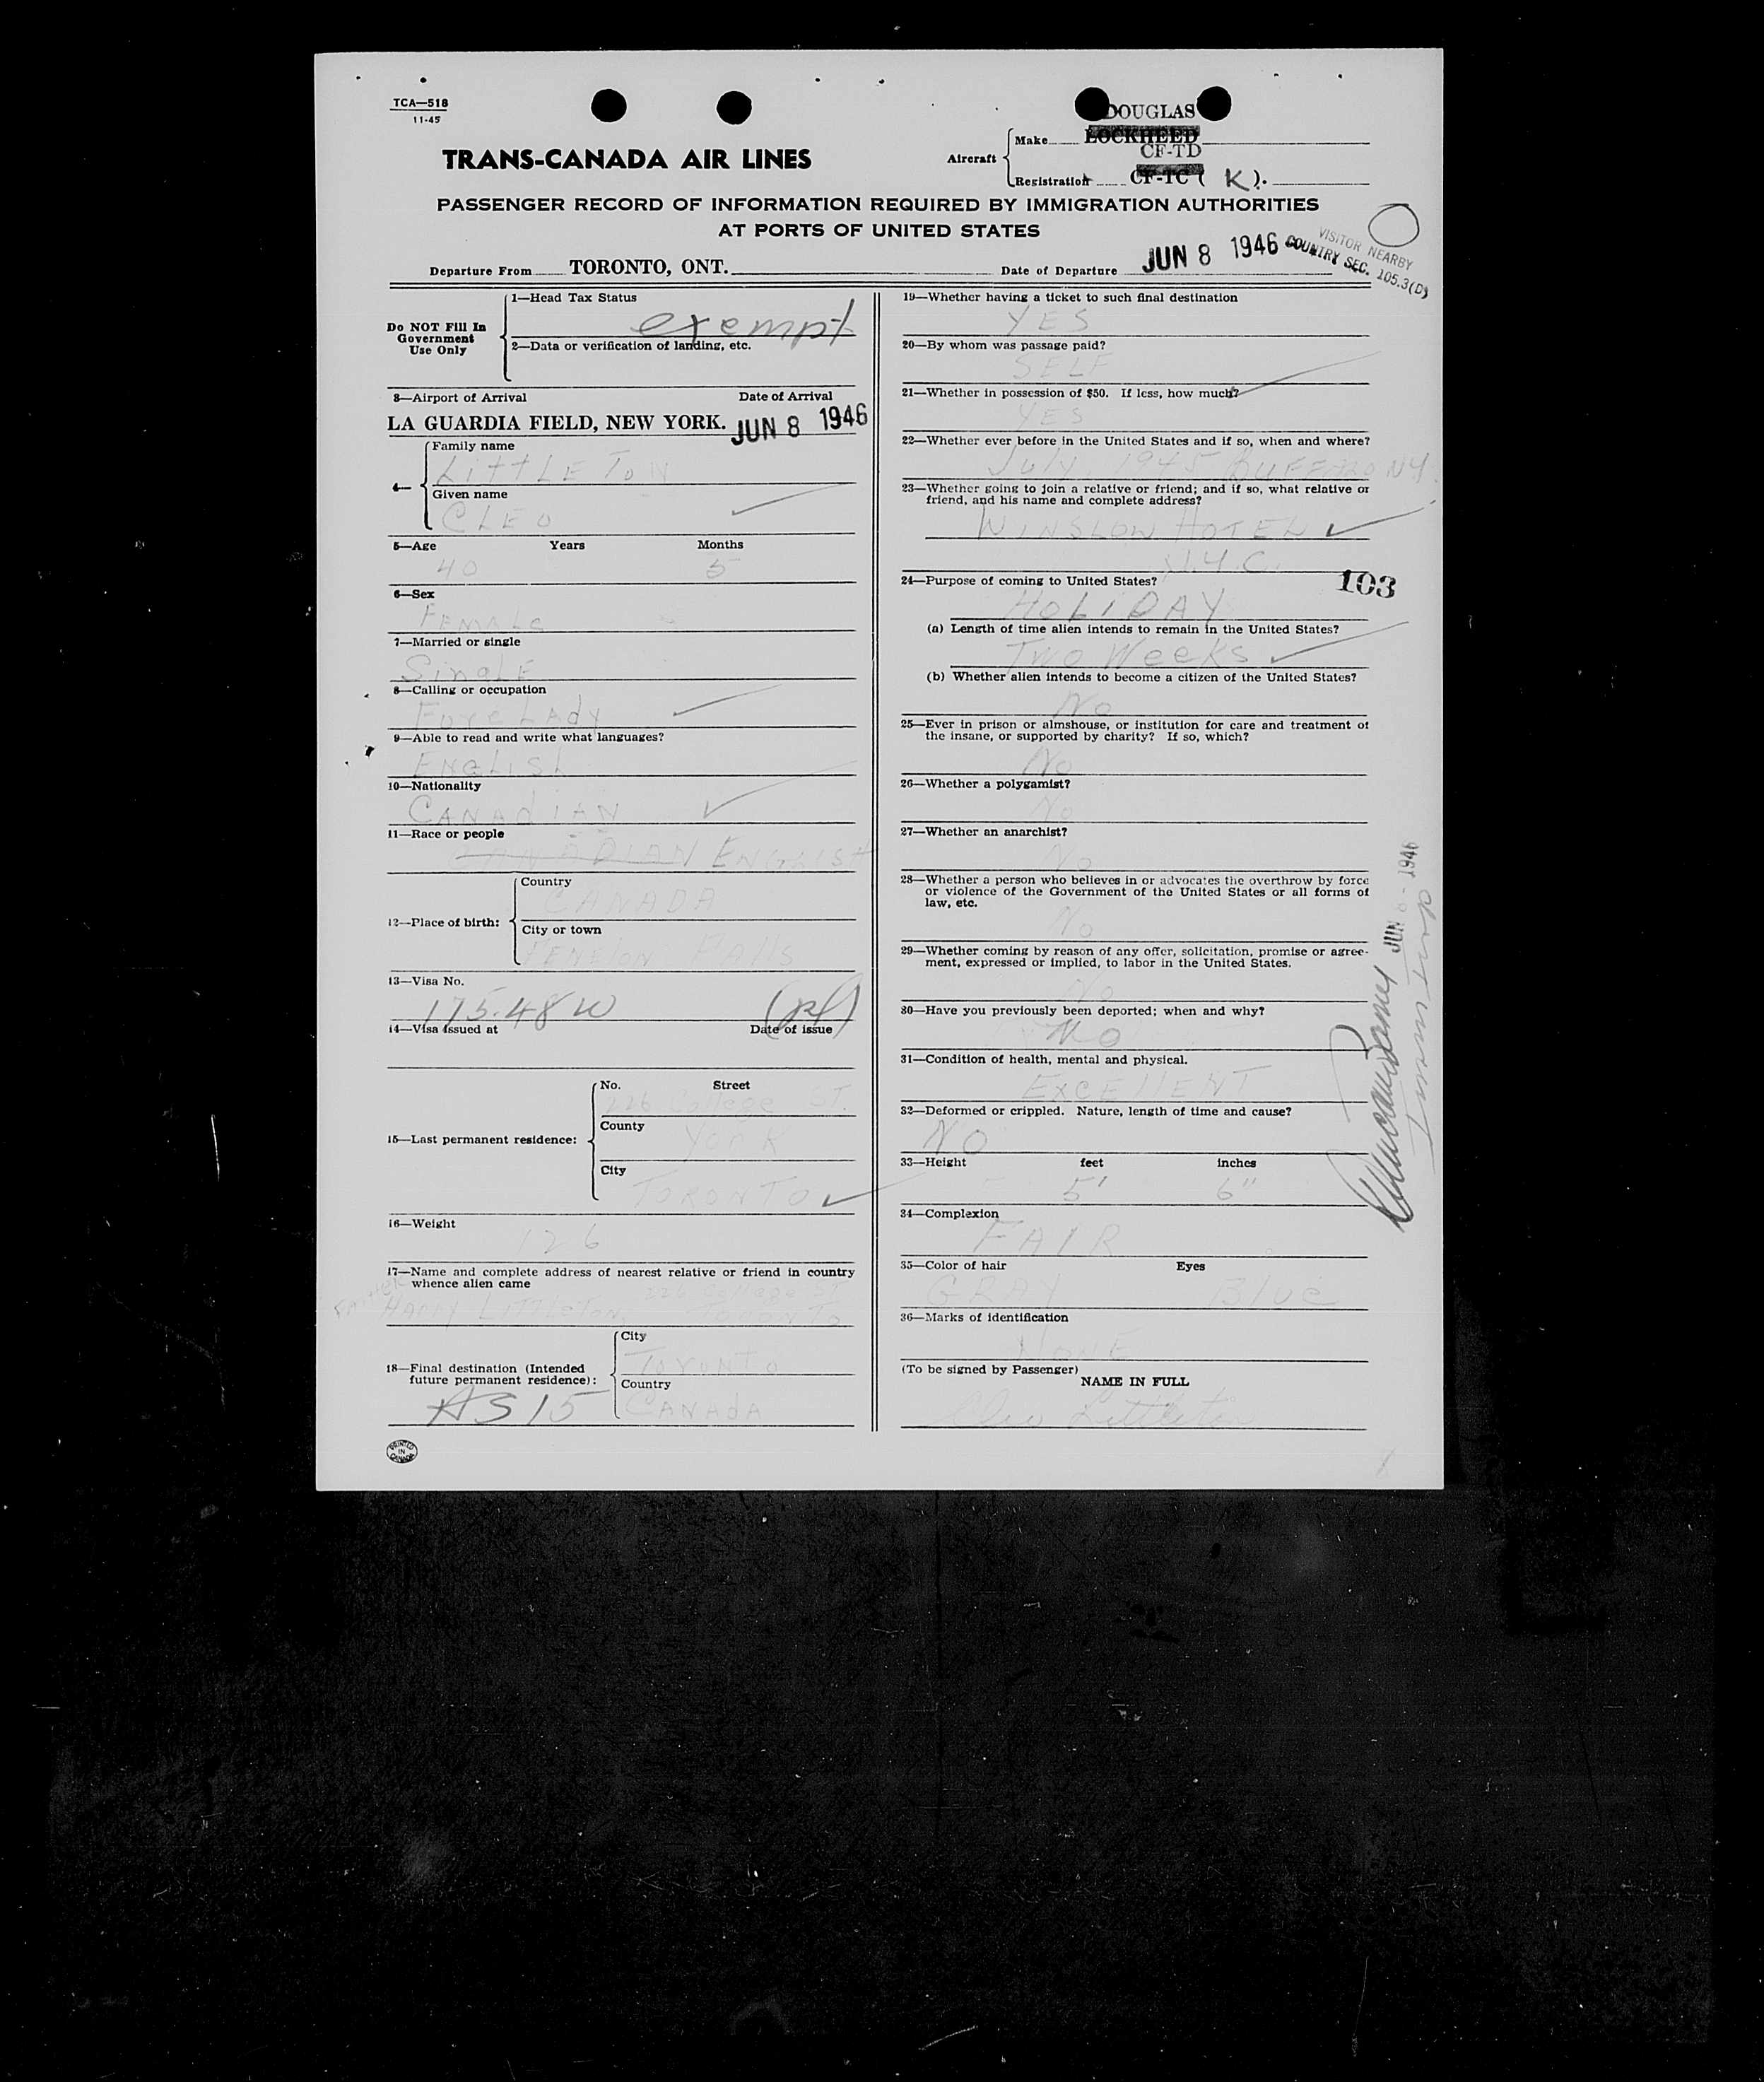 TCA—518
11-45
TRANS-CANADA AIR LINES
DOUGLAS
Aircraft
Make LOCKHEED
CF-TD
Registration CF-TC ( K ).
PASSENGER RECORD OF INFORMATION REQUIRED BY IMMIGRATION AUTHORITIES
AT PORTS OF UNITED STATES
VISITOR NEARBY
COUNTRY SEC. 105.3(D)
Departure From TORONTO, ONT. Date of Departure JUN 8 1946
Do NOT Fill In
Government
Use Only
1—Head Tax Status
exempt
2—Data or verification of landing, etc.
3—Airport of Arrival Date of Arrival
LA GUARDIA FIELD, NEW YORK. JUN 8 1946
4— Family name
LittLE ToN
Given name
CLEO
5—Age Years Months
40 5
6—Sex
FEMALE
7—Married or single
SinglE
8—Calling or occupation
ForeLAdy
9—Able to read and write what languages?
ENGLISh
10—Nationality
CANADIAN
11—Race or people
CANADIAN ENGLISH
12—Place of birth:
Country
CANADA
City or town
FENElON FAlls
13—Visa No.
175.48 W
14—Visa issued at Date of issue
15—Last permanent residence:
No. Street
226 College ST.
County
YorK
City
TORONTO
16—Weight
126
17—Name and complete address of nearest relative or friend in country
whence alien came
FATHER 226 College ST
HARRY LITTLETON, TORONTO
18—Final destination (Intended
future permanent residence):
City
TORONTO
Country
CANAdA
AS 15
PRINTED
IN
CANADA
19—Whether having a ticket to such final destination
YES
20—By whom was passage paid?
SELF
21—Whether in possession of $50. If less, how much?
YES
22—Whether ever before in the United States and if so, when and where?
July, 1945 BUFFALO NY.
23—Whether going to join a relative or friend; and if so, what relative or
friend, and his name and complete address?
WINSLOW HOTEL
N.Y.C.
24—Purpose of coming to United States?
103
HOLIDAY
(a) Length of time alien intends to remain in the United States?
Two Weeks
(b) Whether alien intends to become a citizen of the United States?
No
25—Ever in prison or almshouse, or institution for care and treatment of
the insane, or supported by charity? If so, which?
No
26—Whether a polygamist?
No
27—Whether an anarchist?
No
28—Whether a person who believes in or advocates the overthrow by force
or violence of the Government of the United States or all forms of
law, etc.
No
29—Whether coming by reason of any offer, solicitation, promise or agree-
ment, expressed or implied, to labor in the United States.
No
30—Have you previously been deported; when and why?
NO
31—Condition of health, mental and physical.
EXCEllENT
32—Deformed or crippled. Nature, length of time and cause?
NO
33—Height feet inches
5' 6"
34—Complexion
FAIR
35—Color of hair Eyes
GRAY Blue
36—Marks of identification
NONE
(To be signed by Passenger)
NAME IN FULL
Cleo Littleton
JUN 8 - 1946